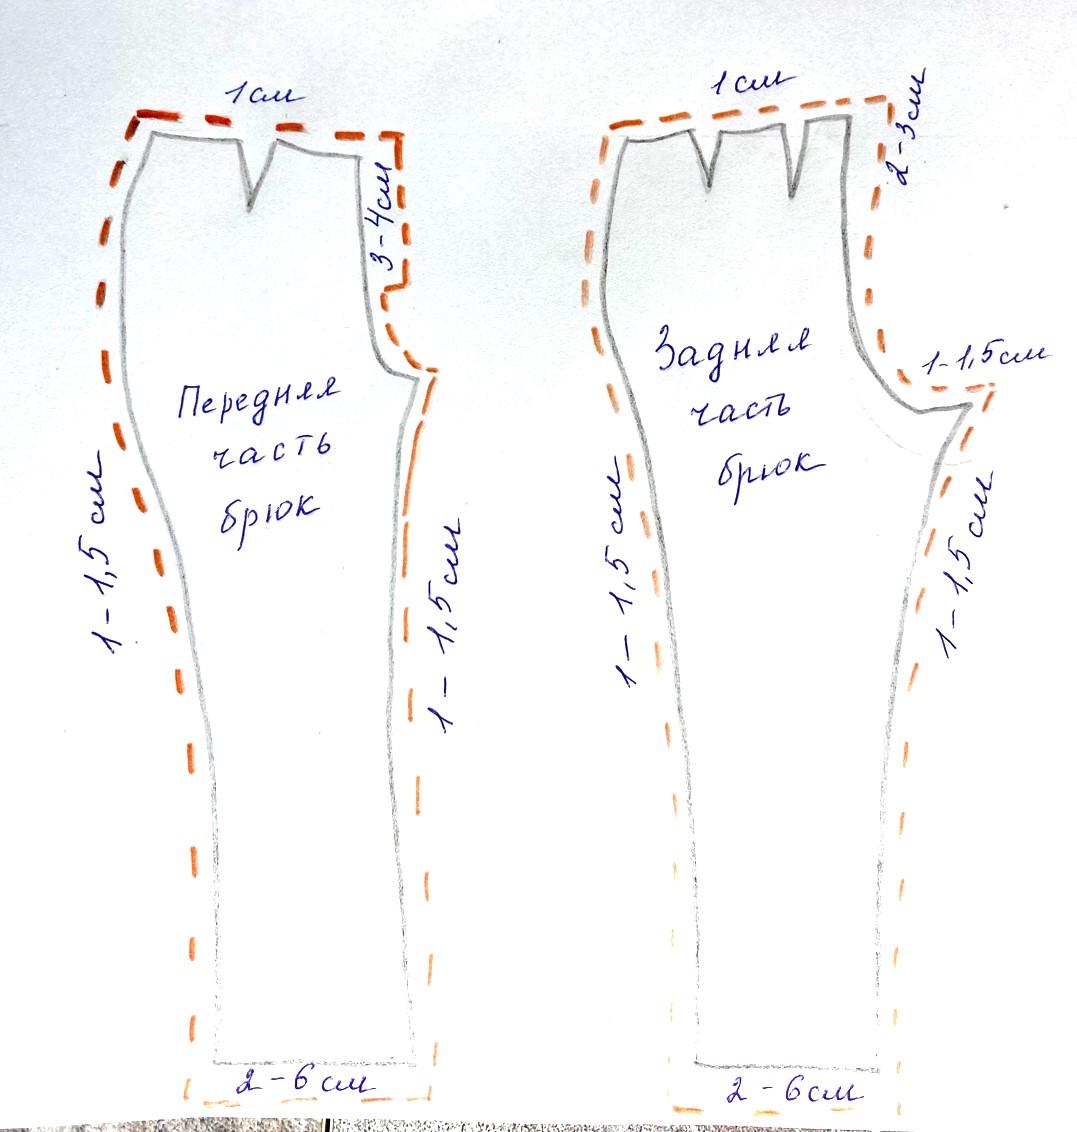 1см
3-4см
Передняя
часть
брюк
1-1,5 см
1-1,5см
2-6см
1см
2-3см
1-1,5см
Задняя
часть
брюк
1-1,5 см
1-1,5 см
2-6см